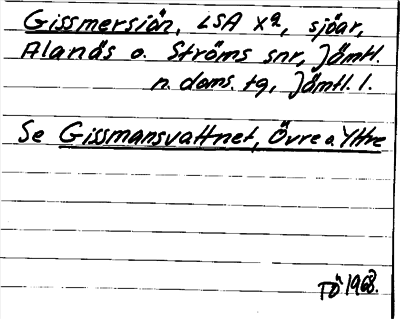 Gissmersiön, LSA X2, sjöar,
Alanäs o. Ströms snr, Jämtl.
n. doms. tg, Jämtl. l.
Se Gissmansvattnet, Övre o. Yttre
TÖ 1968.